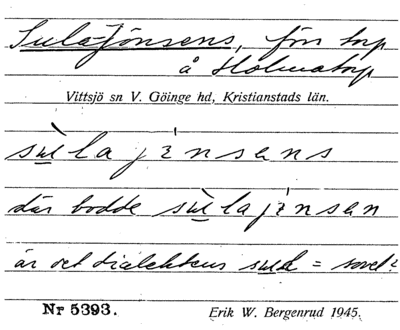 Sula-Jönsens, förr torp
å Holmatorp
Vittsjö sn V. Göinge hd, Kristianstads län.
sula jènsens
där bodde sula jènsen
är det dialektens sule = sovel?
Nr 5393.
Erik W. Bergenrud 1945.